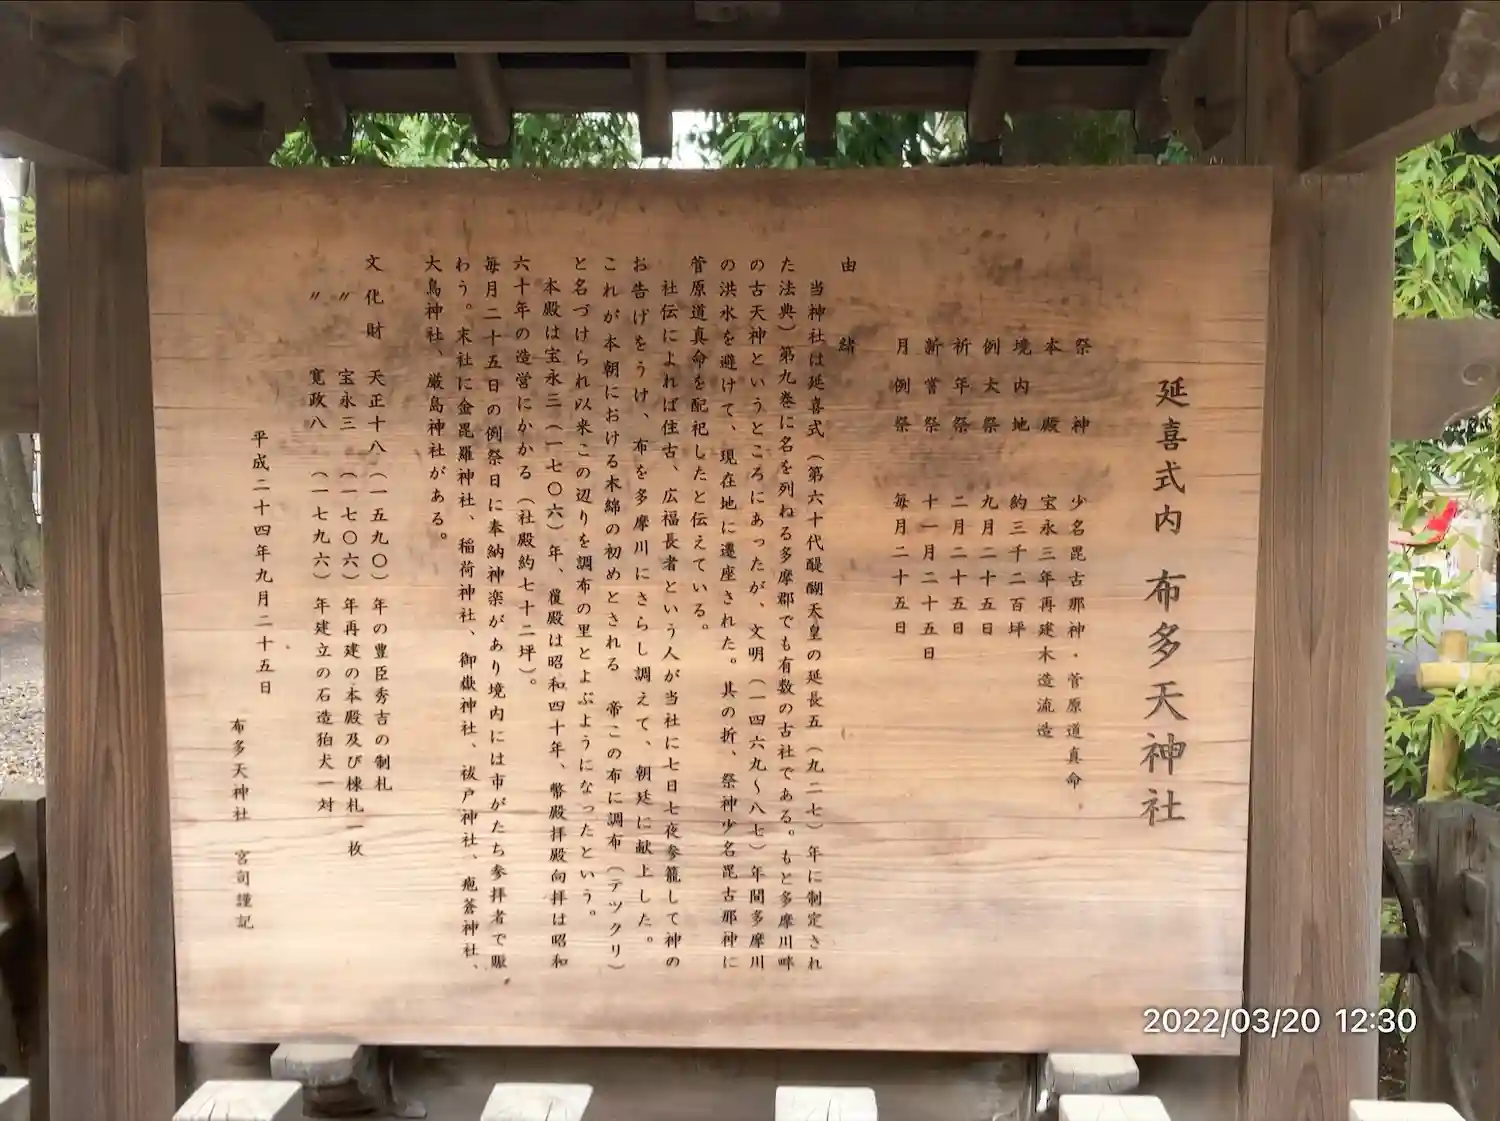 延喜式内 布多天神社
祭神 少名毘古那神・菅原道真命
本殿 宝永三年再建木造流造
境内地 約三千二百坪
例大祭 九月二十五日
祈年祭 二月二十五日
新嘗祭 十一月二十五日
月例祭 毎月二十五日
由緒
当神社は延喜式（第六十代醍醐天皇の延長五（九二七）年に制定され
た法典）第九巻に名を列ねる多摩郡でも有数の古社である。もと多摩川畔
の古天神というところにあったが、文明（一四六九〜八七）年間多摩川
の洪水を避けて、現在地に遷座された。其の折、祭神少名毘古那神に
菅原道真命を配祀したと伝えている。
社伝によれば往古、広福長者という人が当社に七日七夜参籠して神の
お告げをうけ、布を多摩川にさらし調えて、朝廷に献上した。
これが本朝における木綿の初めとされる 帝この布に調布（テツクリ）
と名づけられ以来この辺りを調布の里とよぶようになったという。
本殿は宝永三（一七〇六）年、覆殿は昭和四十年、幣殿拝殿向拝は昭和
六十年の造営にかかる（社殿約七十二坪）。
毎月二十五日の例祭日に奉納神楽があり境内には市がたち参拝者で賑
わう。末社に金毘羅神社、稲荷神社、御嶽神社、祓戸神社、疱蒼神社、
大鳥神社、厳島神社がある。
文化財 天正十八（一五九〇）年の豊臣秀吉の制札
〃 宝永三（一七〇六）年再建の本殿及び棟札一枚
〃 寛政八（一七九六）年建立の石造狛犬一対
平成二十四年九月二十五日
布多天神社 宮司謹記
2022/03/20 12:30